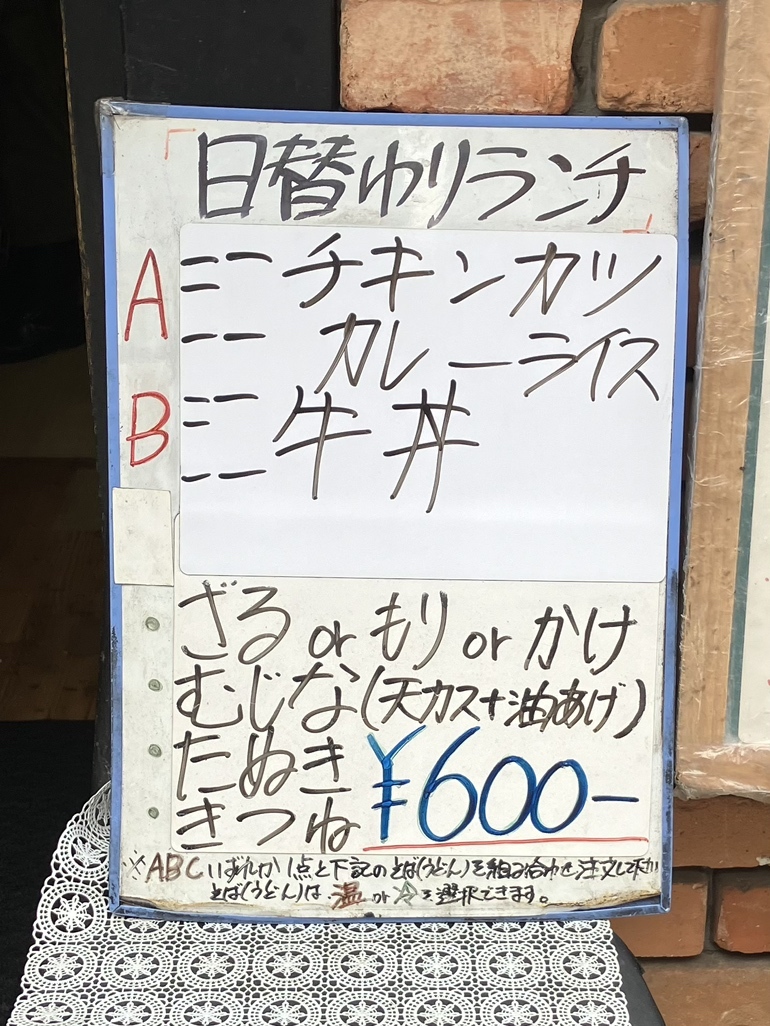 「日替わりランチ」
A ミニチキンカツ
ミニカレーライス
B ミニ牛丼
ざる or もり or かけ
むじな(天カス+油あげ)
たぬき
きつね ¥600-
※ABCいずれか1点と下記のそば(うどん)を組み合わせ注文して下さい
そば(うどん)は 温 or 冷 を選択できます。